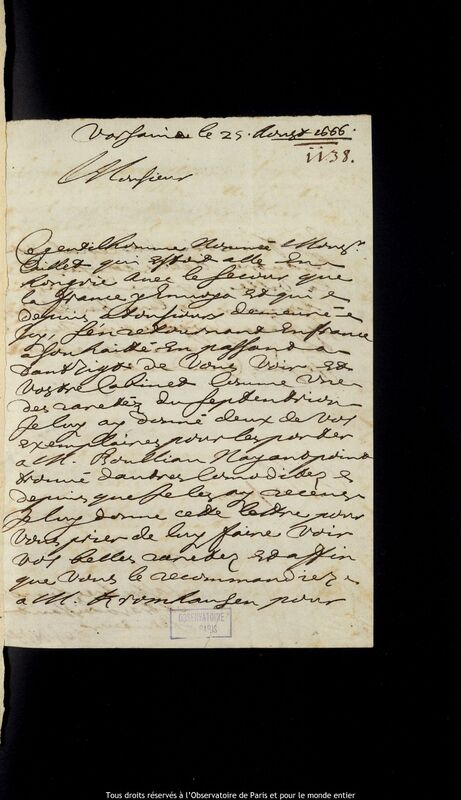 Varsavie le 25. Aoust 1666.
1138.
Monsieur
Ce gentilhomme Nommé Monsr.
Gillet qui estoit allé En
hongrie avec le secours que
la france y Envoya Et qui a
depuis a tousiours demeuré a
Icy, s'en retournant En france
a souhaitté En passant a
dantzigt de Vous Voir Et
Vostre Cabinet Comme Une
des raretez du septentrion
Je luy ay donné deux de Vos
exemplaires pour les porter
a M. Boulliau N'ayant point
trouvé d'autres Comoditez
depuis que Je les ay receus
Je luy donne cette lettre pour
Vous prier de luy faire Voir
Vos belles raretez Et affin
que Vous le recommandiez
a M. Kromhausen pour
OBSERVATOIRE
PARIS
Tous droits réservés à l'Observatoire de Paris et pour le monde entier